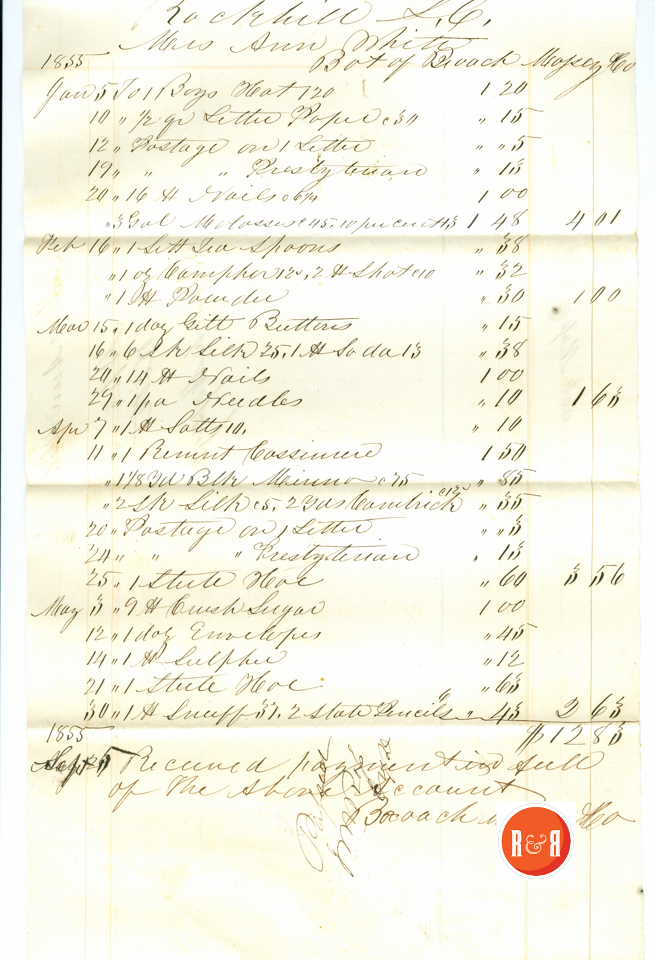 Rockhill S.C.
Mrs Ann White
1855 Bot of Broach Massey & Co
Jan 5 To 1 Boys Hat 120 1 20
10 " 1/2 qr Letter Paper c30 " 15
12 " Postage on 1 Letter " " 5
19 " " " Presbyterian " 13
20 " 16 # Nails 1 00
" 3 Gal Molasses c45. 10 per cent 13 1 48 4 01
Feb 16 " 1 Sett Tea Spoons " 38
" 1 oz Camphor 12, 2 # Shot c10 " 32
" 1 # Powder " 30 1 00
Mar 15 " 1 doz Gilt Buttons " 15
16 " 6 sk Silk 25, 1 # Soda 13 " 38
20 " 14 # Nails 1 00
29 " 1 pa Needles " 10 1 63
Apr 7 " 1 # Salts 10. " 10
11 " 1 Remnt Cassimere 1 50
" 1 1/8 yd Blk Merino c75 " 85
" 2 sk Silk c5, 2 yds Cambrick " 35
20 " Postage on 1 Letter " " 3
24 " " " Presbyterian " 13
25 " 1 Steele Hoe " 60 3 56
May 3 " 9 # Crush Sugar 1 00
12 " 1 doz Envelopes " 45
14 " 1 # Sulpher " 12
21 " 1 Steele Hoe " 63
30 " 1 # Snuff 37, 2 Slate Pencils 6 " 43 2 63
1855 $12 83
Sept 25 Received payment in full
of The Above Account
Broach M & Co
R&R